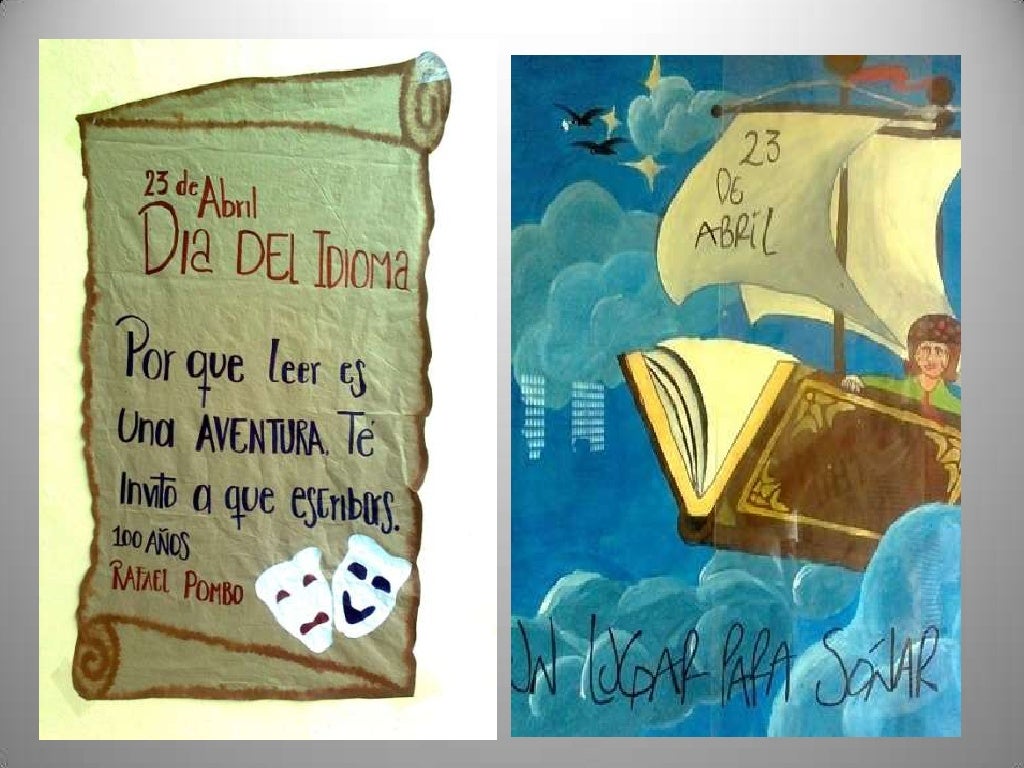 23 de Abril
Dia DEL IDIOMA
Por que leer es
Una AVENTURA. Té
Invito a que escribas.
100 AÑOS
RAFAEL POMBO
23
DE
ABRIL
UN LUGAR PARA SOÑAR